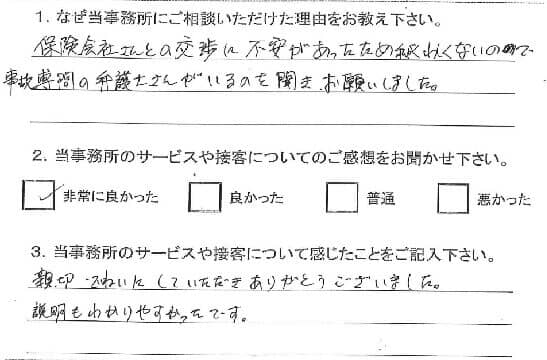 1. なぜ当事務所にご相談いただけた理由をお教え下さい。
保険会社さんとの交渉に不安があったため 詳しくないので
事故専門の弁護士さんがいるのを聞き、お願いしました。
2. 当事務所のサービスや接客についてのご感想をお聞かせ下さい。
非常に良かった 良かった 普通 悪かった
3. 当事務所のサービスや接客について感じたことをご記入下さい。
親切 ていねいにしていただきありがとうございました。
説明もわかりやすかったです。